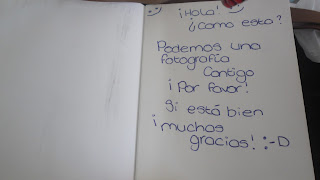 ¡Hola!
¿Como esta?
Podemos una
fotografía
Contigo
¡Por favor!
Si está bien
¡muchas
gracias! :-D